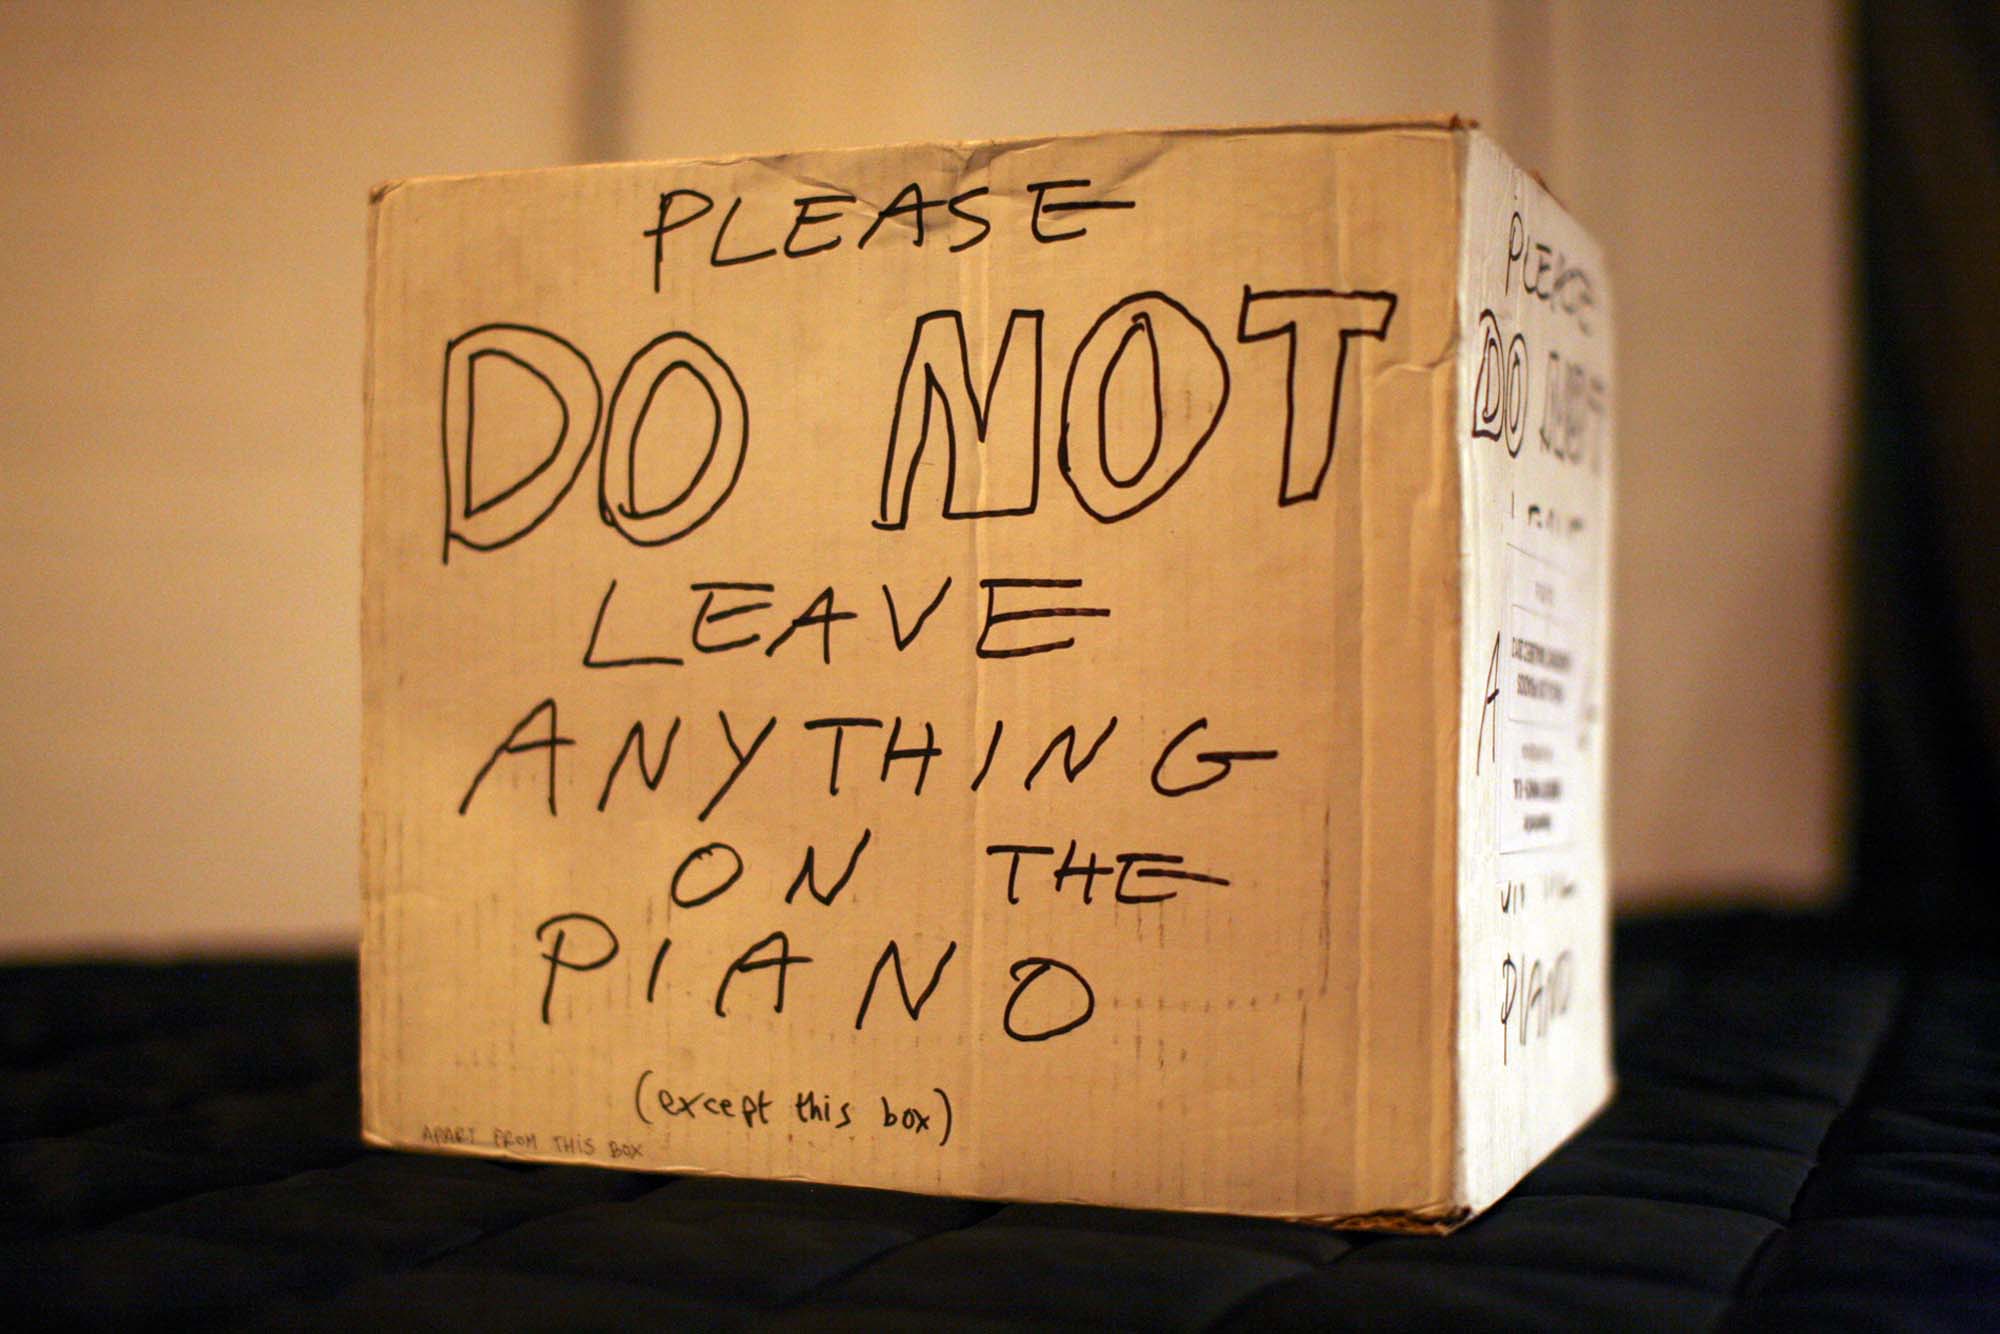 PLEASE
DO NOT
LEAVE
ANYTHING
ON THE
PIANO
(except this box)
APART FROM THIS BOX
PLEASE
DO NOT
A
PIANO